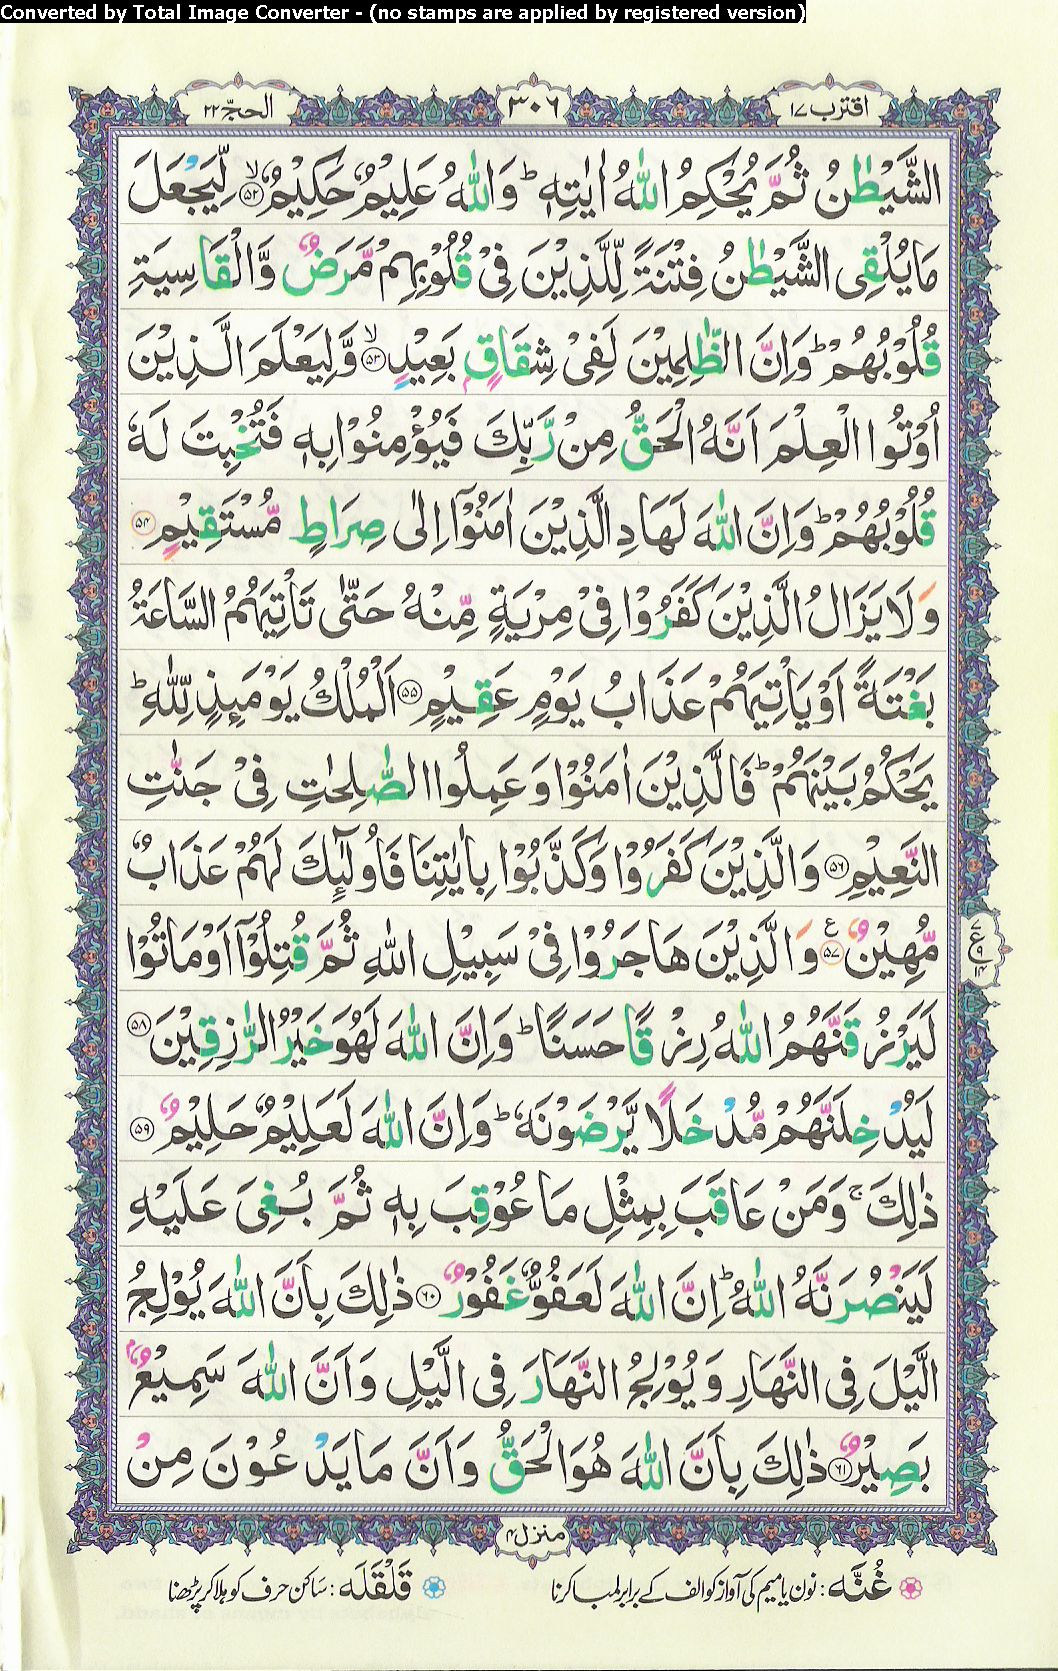 Converted by Total Image Converter - (no stamps are applied by registered version)
اقترب ١٧
٣٠٦
الحجّ ٢٢
الشَّيْطٰنُ ثُمَّ يُحْكِمُ اللّٰهُ اٰيٰتِهٖ ؕ وَاللّٰهُ عَلِيْمٌ حَكِيْمٌ ۙ‏﴿۵۲﴾ لِّيَجْعَلَ
مَا يُلْقِى الشَّيْطٰنُ فِتْنَةً لِّلَّذِيْنَ فِىْ قُلُوْبِهِمْ مَّرَضٌ وَّالْقَاسِيَةِ
قُلُوْبُهُمْ ؕ وَاِنَّ الظّٰلِمِيْنَ لَفِىْ شِقَاقٍۭ بَعِيْدٍ ۙ﴿۵۳﴾ وَّلِيَعْلَمَ الَّذِيْنَ
اُوْتُوا الْعِلْمَ اَنَّهُ الْحَقُّ مِنْ رَّبِّكَ فَيُؤْمِنُوْا بِهٖ فَتُخْبِتَ لَهٗ
قُلُوْبُهُمْ ؕ وَاِنَّ اللّٰهَ لَهَادِ الَّذِيْنَ اٰمَنُوْۤا اِلٰى صِرَاطٍ مُّسْتَقِيْمٍ ﴿۵۴﴾
وَلَا يَزَالُ الَّذِيْنَ كَفَرُوْا فِىْ مِرْيَةٍ مِّنْهُ حَتّٰى تَاْتِيَهُمُ السَّاعَةُ
بَغْتَةً اَوْ يَاْتِيَهُمْ عَذَابُ يَوْمٍ عَقِيْمٍ ﴿۵۵﴾ اَلْمُلْكُ يَوْمَئِذٍ لِّلّٰهِ ؕ
يَحْكُمُ بَيْنَهُمْ ؕ فَالَّذِيْنَ اٰمَنُوْا وَعَمِلُوا الصّٰلِحٰتِ فِىْ جَنّٰتِ
النَّعِيْمِ ﴿۵۶﴾ وَالَّذِيْنَ كَفَرُوْا وَكَذَّبُوْا بِاٰيٰتِنَا فَاُولٰٓئِكَ لَهُمْ عَذَابٌ
مُّهِيْنٌ ﴿۵۷﴾ ع وَالَّذِيْنَ هَاجَرُوْا فِىْ سَبِيْلِ اللّٰهِ ثُمَّ قُتِلُوْۤا اَوْ مَاتُوْا
ع ٧ ٩ ١٤
لَيَرْزُقَنَّهُمُ اللّٰهُ رِزْقًا حَسَنًا ؕ وَاِنَّ اللّٰهَ لَهُوَ خَيْرُ الرّٰزِقِيْنَ ﴿۵۸﴾
لَيُدْخِلَنَّهُمْ مُّدْخَلًا يَّرْضَوْنَهٗ ؕ وَاِنَّ اللّٰهَ لَعَلِيْمٌ حَلِيْمٌ ﴿۵۹﴾
ذٰلِكَ ۚ وَمَنْ عَاقَبَ بِمِثْلِ مَا عُوْقِبَ بِهٖ ثُمَّ بُغِىَ عَلَيْهِ
لَيَنْصُرَنَّهُ اللّٰهُ ؕ اِنَّ اللّٰهَ لَعَفُوٌّ غَفُوْرٌ ﴿۶۰﴾ ذٰلِكَ بِاَنَّ اللّٰهَ يُوْلِجُ
الَّيْلَ فِى النَّهَارِ وَيُوْلِجُ النَّهَارَ فِى الَّيْلِ وَاَنَّ اللّٰهَ سَمِيْعٌۢ
بَصِيْرٌ ﴿۶۱﴾ ذٰلِكَ بِاَنَّ اللّٰهَ هُوَ الْحَقُّ وَاَنَّ مَا يَدْعُوْنَ مِنْ
منزل ۴
غُنَّه : نون یا میم کی آواز کو الف کے برابر لمبا کرنا
قَلْقَلَه : ساکن حرف کو ہلا کر پڑھنا